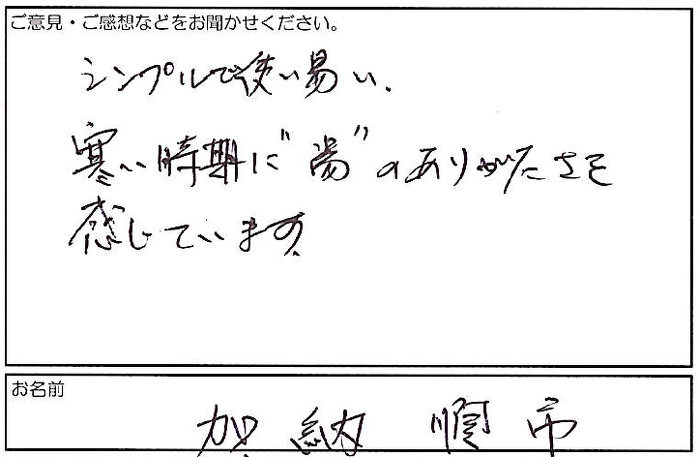 ご意見・ご感想などをお聞かせください。
シンプルで使い易い、
寒い時期に"湯"のありがたさを
感じています。
お名前
加納 順市